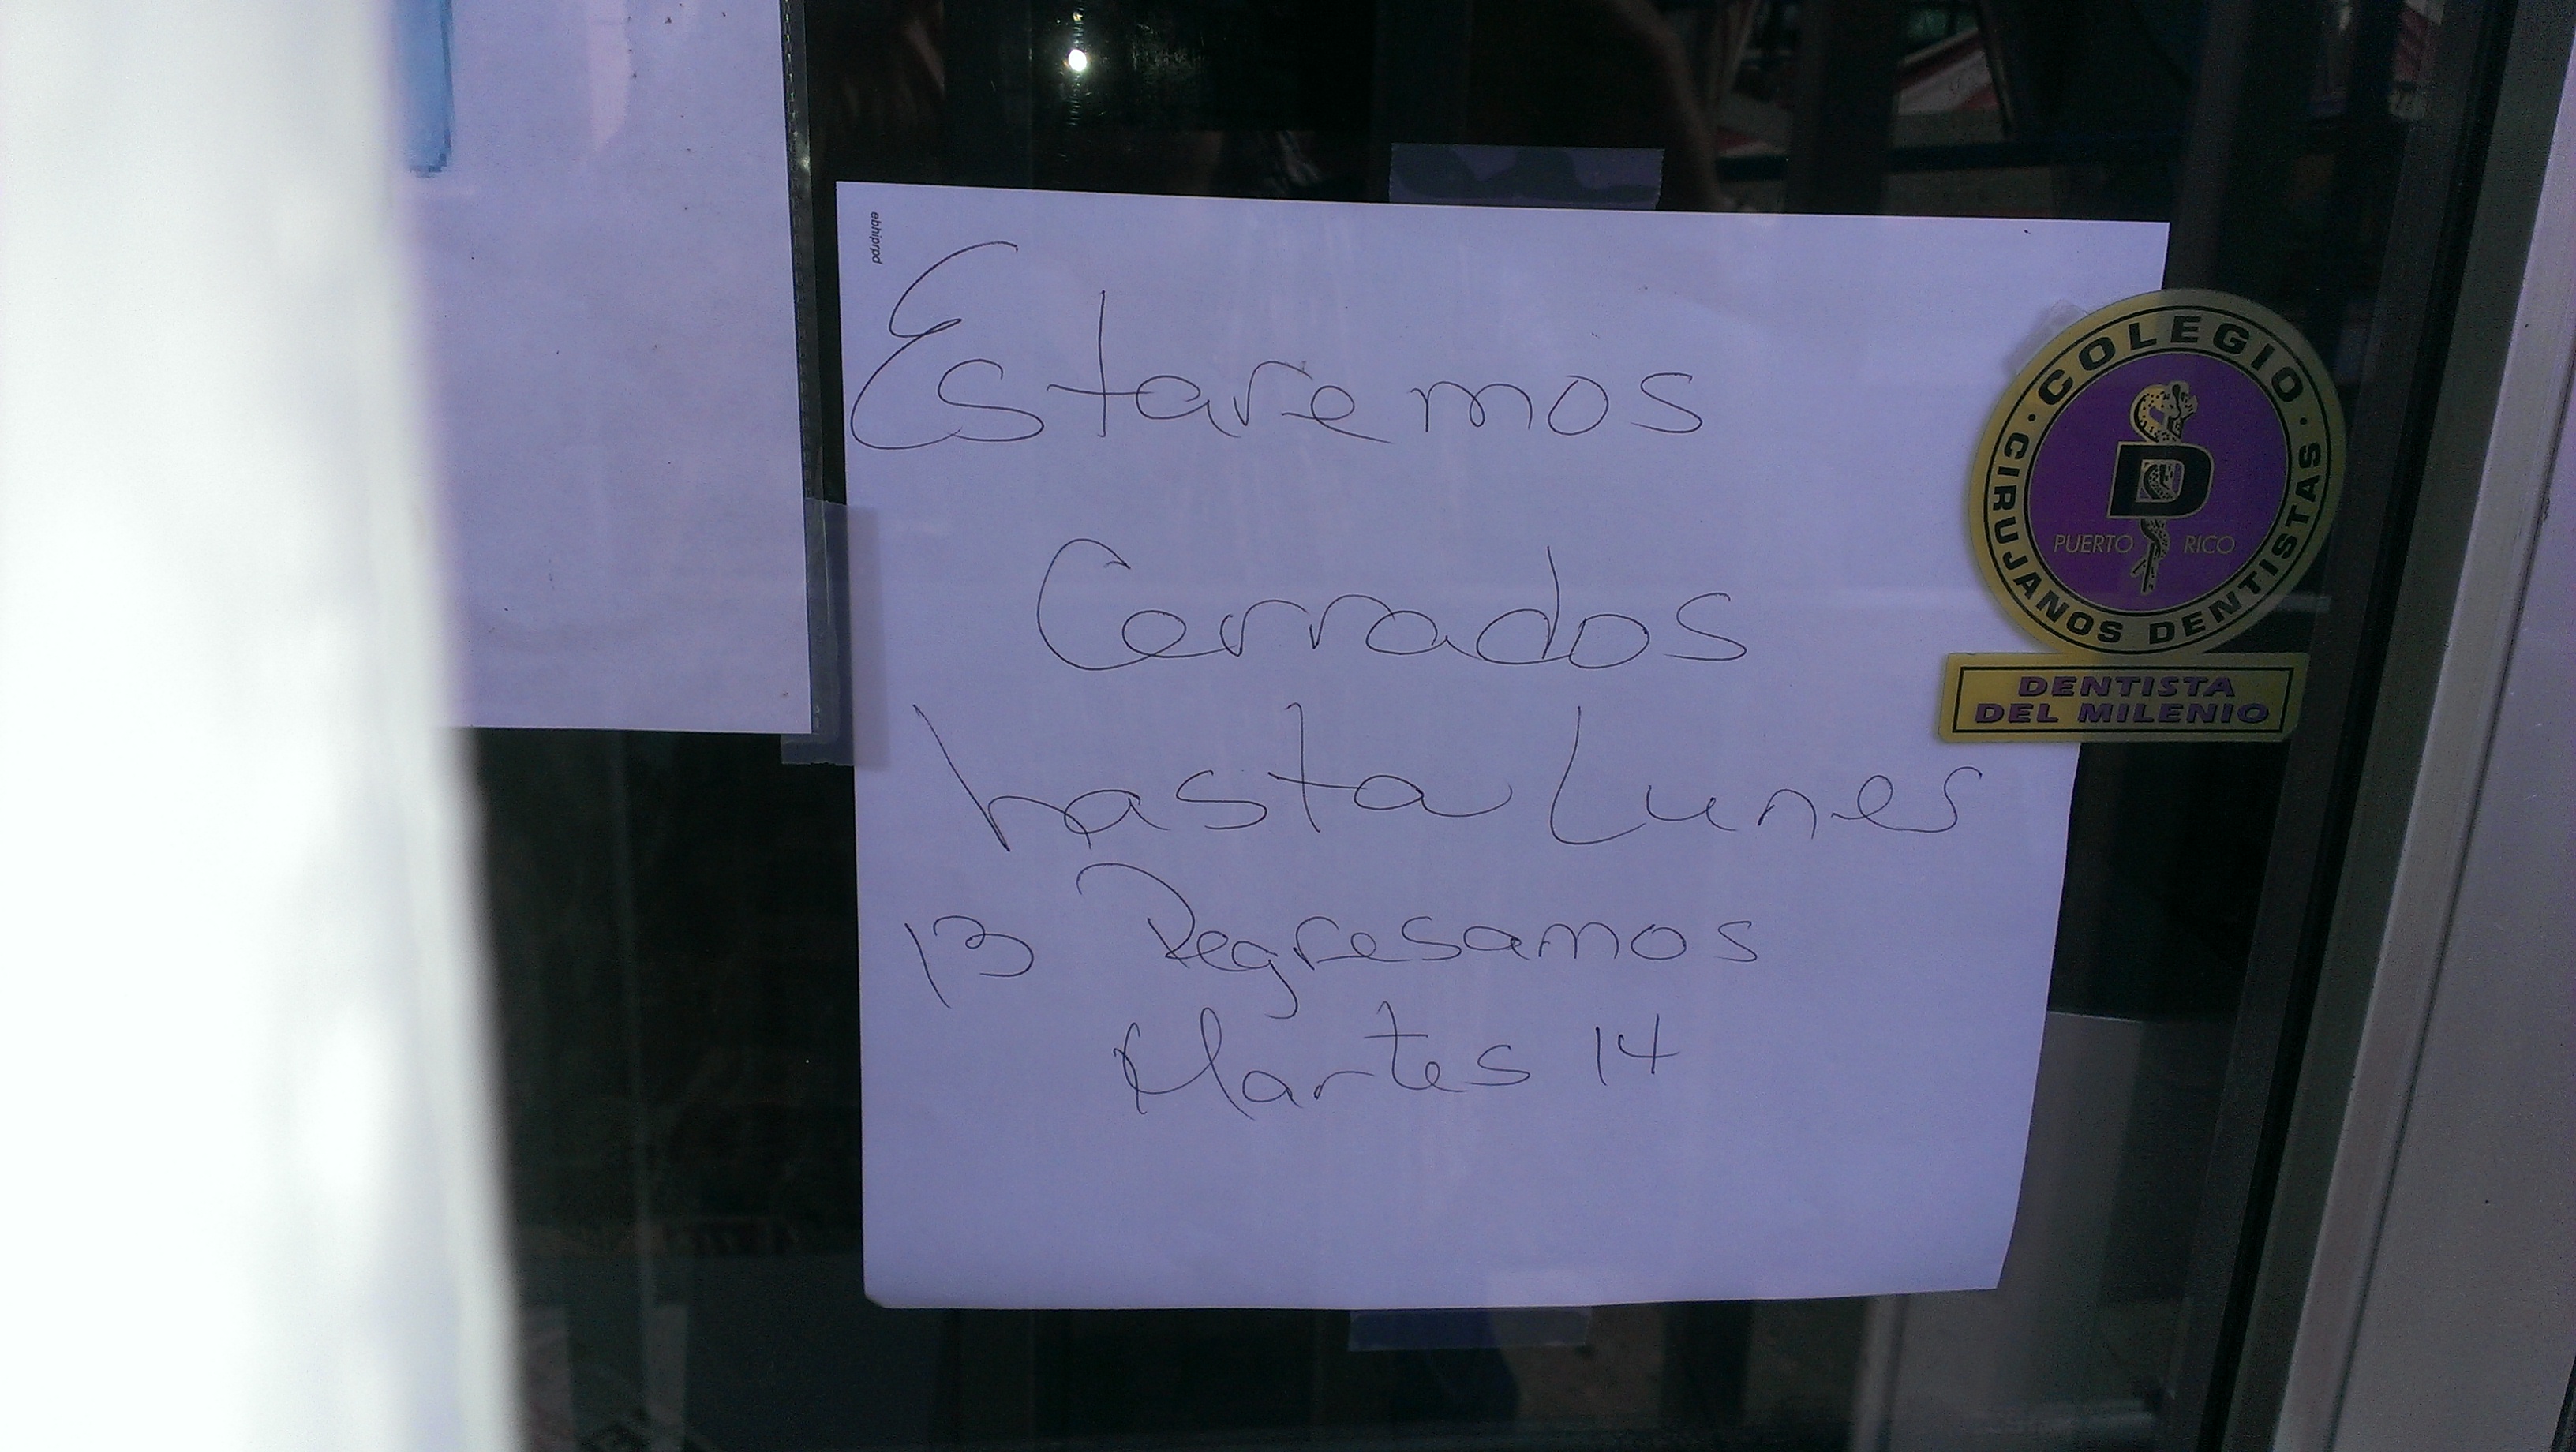 ebhiprpd
Estaremos
Cerrados
hasta Lunes
13 Regresamos
Martes 14
· COLEGIO ·
CIRUJANOS DENTISTAS
D
PUERTO RICO
DENTISTA
DEL MILENIO